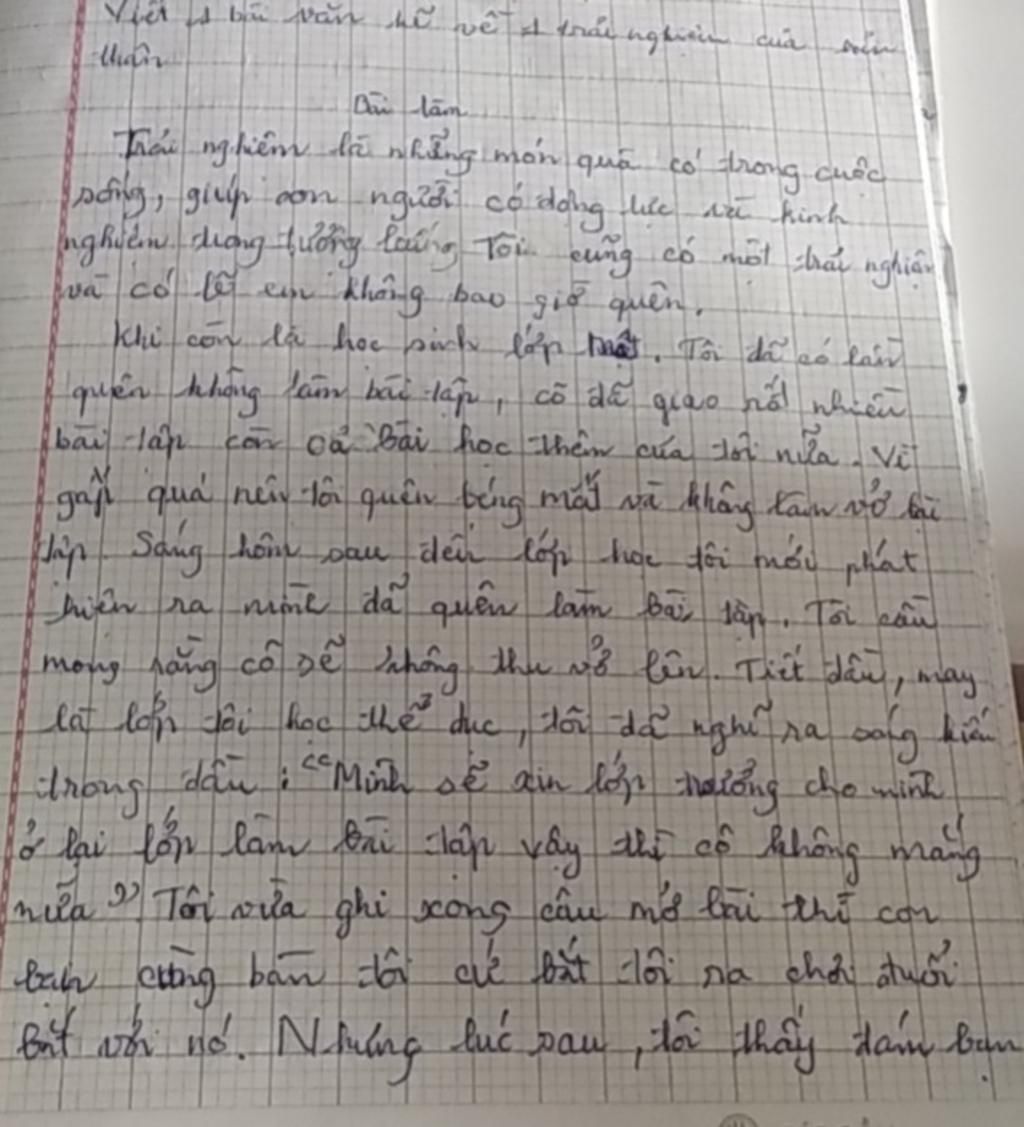 Viết 1 bài văn kể về 1 trải nghiệm của bản
thân
Bài làm
Trải nghiệm là những món quà có trong cuộc
sống, giúp con người có động lực và kinh
nghiệm trong tương lai. Tôi cũng có một trải nghiệm
và có lẽ em không bao giờ quên.
Khi còn là học sinh lớp một. Tôi đã có lần
quên không làm bài tập, cô đã giao rất nhiều
bài tập còn cả bài học thêm của tôi nữa. Vì
gấp quá nên tôi quên béng mất và không làm vở bài
tập. Sáng hôm sau đến lớp học tôi mới phát
hiện ra mình đã quên làm bài tập. Tôi cầu
mong rằng cô sẽ không thu vở lên. Tiết đầu, may
lại lớp tôi học thể dục, tôi đã nghĩ ra sáng kiến
trong đầu : "Mình sẽ xin lớp trưởng cho mình
ở lại lớp làm bài tập vậy thì cô không mắng
nữa" Tôi vừa ghi xong câu mở bài thì con
bạn cùng bàn tôi cứ bắt tôi ra chơi đuổi
bắt với nó. Nhưng lúc sau, tôi thấy đám bạn